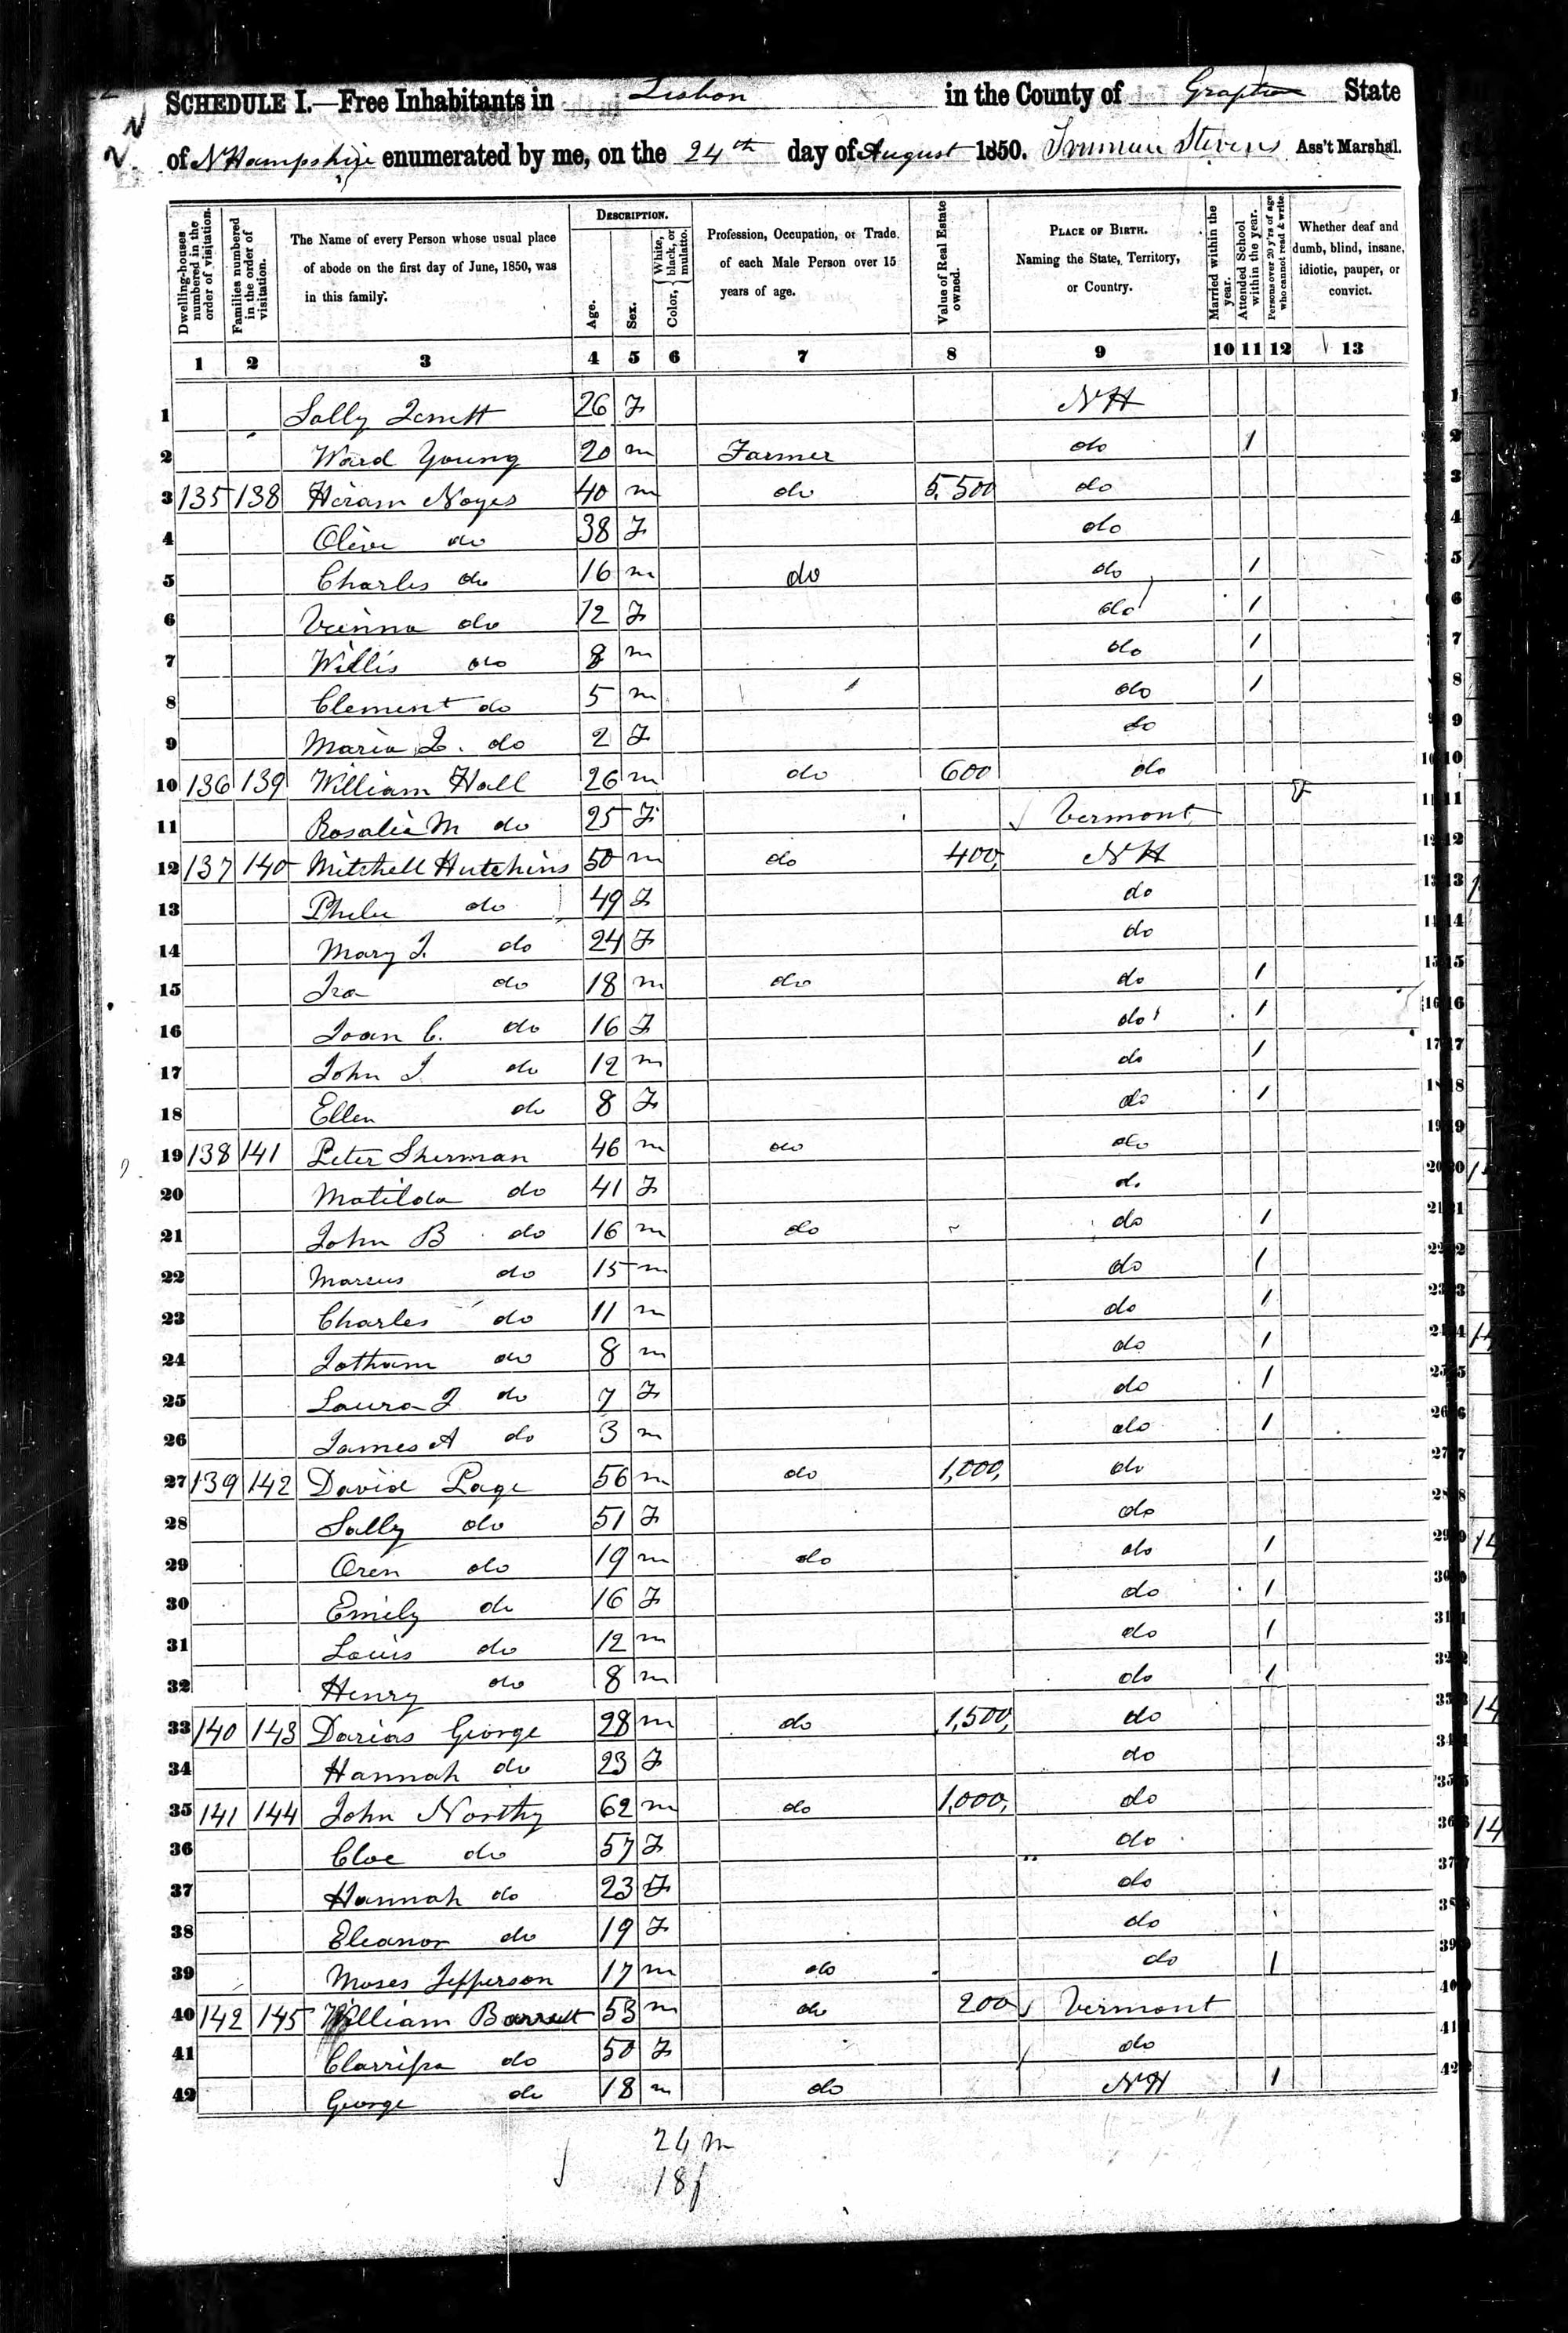 22
SCHEDULE I.—Free Inhabitants in Lisbon in the County of Grafton State
of N Hampshire enumerated by me, on the 24th day of August 1850. Truman Stevens Ass't Marshal.
Dwelling-houses numbered in the order of visitation.
Families numbered in the order of visitation.
The Name of every Person whose usual place of abode on the first day of June, 1850, was in this family.
DESCRIPTION.
Age.
Sex.
Color, { White, black, or mulatto.
Profession, Occupation, or Trade of each Male Person over 15 years of age.
Value of Real Estate owned.
PLACE OF BIRTH. Naming the State, Territory, or Country.
Married within the year.
Attended School within the year.
Persons over 20 y'rs of age who cannot read & write.
Whether deaf and dumb, blind, insane, idiotic, pauper, or convict.
1 2 3 4 5 6 7 8 9 10 11 12 13
1 Sally 26 F N H
2 Ward Young 20 m Farmer do 1
3 135 138 Hiram Noyes 40 m do 5,500 do
4 Olive do 38 F do
5 Charles do 16 m do do 1
6 Vienna do 12 F do 1
7 Willis do 8 m do 1
8 Clement do 5 m do 1
9 Maria L. do 2 F do
10 136 139 William Hall 26 m do 600 do
11 Rosalie M do 25 F Vermont
12 137 140 Mitchell Hutchins 50 m do 400, N H
13 Phebe do 49 F do
14 Mary J. do 24 F do
15 Ira do 18 m do do 1
16 Joan C. do 16 F do 1
17 John J do 12 m do 1
18 Ellen do 8 F do 1
19 138 141 Peter Sherman 46 m do do
20 Matilda do 41 F do
21 John B do 16 m do do 1
22 Marcus do 15 m do 1
23 Charles do 11 m do 1
24 Jotham do 8 m do 1
25 Laura J do 7 F do 1
26 James A do 3 m do 1
27 139 142 David Page 56 m do 1,000, do
28 Sally do 51 F do
29 Oren do 19 m do do 1
30 Emily do 16 F do 1
31 Louis do 12 m do 1
32 Henry do 8 m do 1
33 140 143 Darias George 28 m do 1,500, do
34 Hannah do 23 F do
35 141 144 John Northy 62 m do 1,000, do
36 Cloe do 57 F do
37 Hannah do 23 F do
38 Eleanor do 19 F do
39 Moses Jefferson 17 m do do 1
40 142 145 William Barrett 53 m do 200 Vermont
41 Clarrissa do 50 F do
42 George do 18 m do N H 1
24 m
18 f